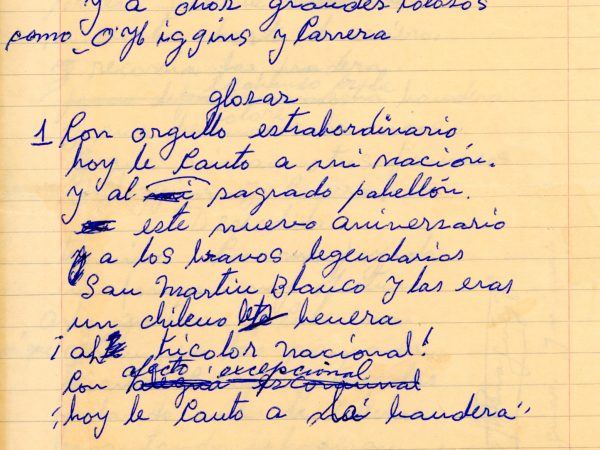 y a otros grandes colosos
como O'Higgins y Carrera
glosar
1 Con orgullo estrahordinario
hoy le Canto a mi nación.
y al sagrado pabellón.
este nuevo aniversario
y a los bravos legendarios
San Martin Blanco y las eras
un chileno benera
¡al tricolor nacional!
afecto excepcional
Con
¡hoy le Canto a la bandera!